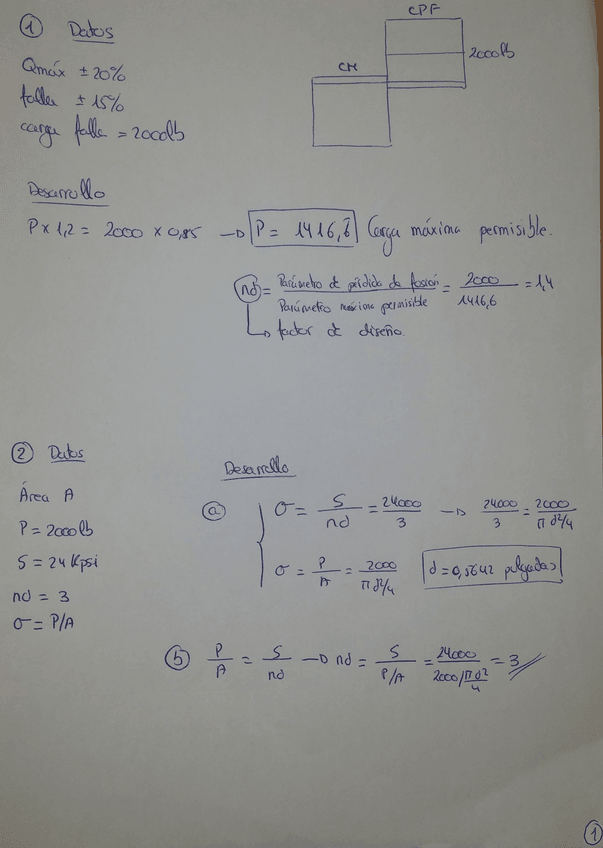 ① Datos
Qmáx ±20%
falla ±15%
carga falla = 2000lb
CPF
2000lb
CM
Desarrollo
P x 1,2 = 2000 x 0,85 → P = 1416,6̄ Carga máxima permisible.
nd = Parámetro de pérdida de fusión / Parámetro máximo permisible = 2000 / 1416,6 = 1,4
↳ factor de diseño.
② Datos
Área A
P = 2000lb
S = 24 Kpsi
nd = 3
σ = P/A
Desarrollo
ⓐ σ = S / nd = 24000 / 3 → 24000 / 3 = 2000 / π d²/4
σ = P / A = 2000 / π d²/4 d = 0,5642 pulgadas
ⓑ P / A = S / nd → nd = S / P/A = 24000 / 2000/πd²/4 = 3
①